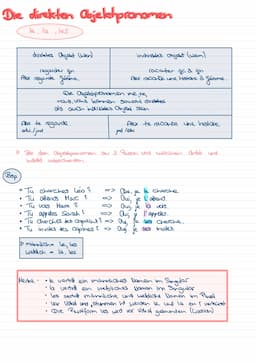 Die direkten Objektpronomen
le, la, les
direktes Objekt (wen)
indirektes Objekt (wem)
regarder qn
raconter qc à qn
Alex regarde Jérôme.
Alex raconte une histoire à Jérôme.
Die Objektpronomen me, te,
nous, vous können sowohl direktes
als auch indirektes Objekt sein
Alex te regarde
Alex te raconte une histoire.
Bei den Objektpronomen der 3. Person
Bsp.
Tu cherches Léo? => Oui, je le cherche.
Tu attends Marc? => Oui, je l'attends.
Tu vois Marie? => Oui, je la vois.
Tu appelles Sarah? => Oui, je l'appelle.
Tu cherches les? => Oui, je les cherche.
Tu invites les copines? => Oui, je les invite.
männlich = le, les
weiblich = la, les
Merke:
le ersetzt ein männliches Nomen im Singular
la ersetzt ein weibliches Nomen im Singular
les ersetzt männliche und weibliche Nomen im Plural
vor Vokal und stummem H werden le und la zu l' verkürzt
Die Pluralform les wird vor Vokal gebunden (Liaison)